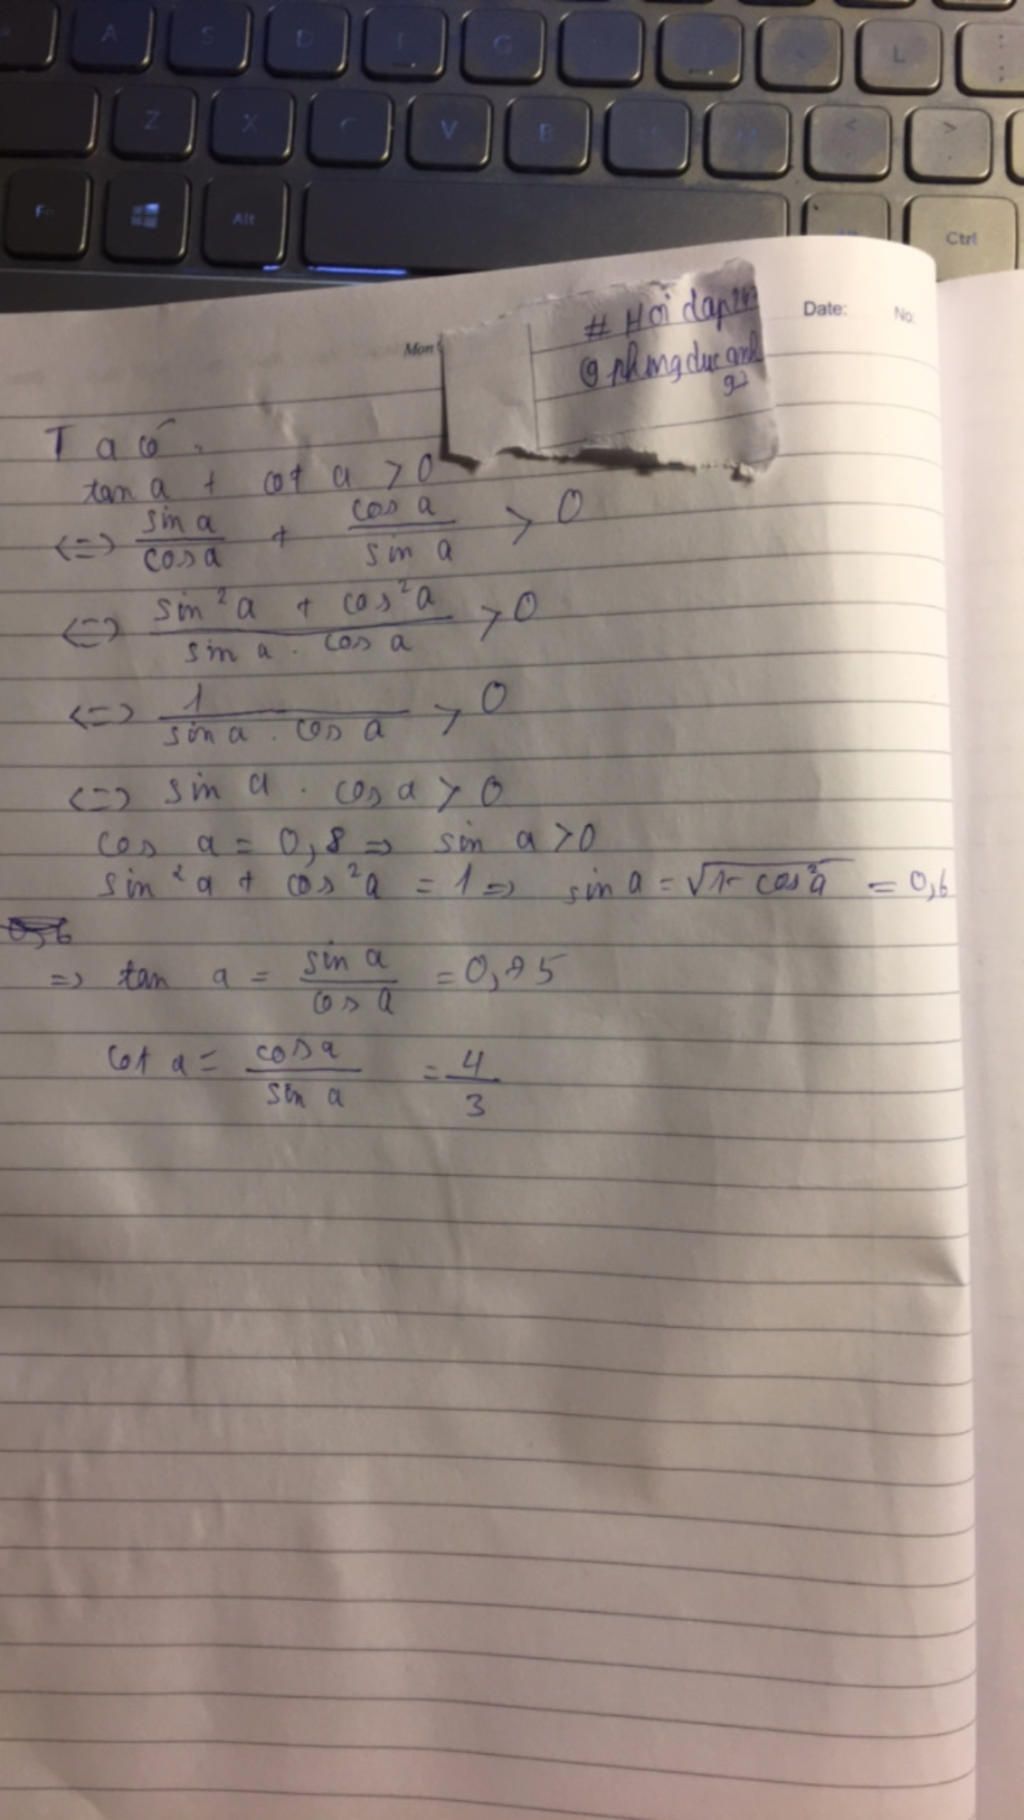 A S D G L
Z X C V B < >
Fn Alt Ctrl
# Hoi dap 247
Date: No:
Mon
Ta có
tan a + cot a > 0
<=> sin a / cos a + cos a / sin a > 0
<=> sin²a + cos²a / sin a . cos a > 0
<=> 1 / sin a . cos a > 0
<=> sin a . cos a > 0
cos a = 0,8 => sin a > 0
sin²a + cos²a = 1 => sin a = √1 - cos²a = 0,6
=> tan a = sin a / cos a = 0,75
cot a = cos a / sin a = 4 / 3